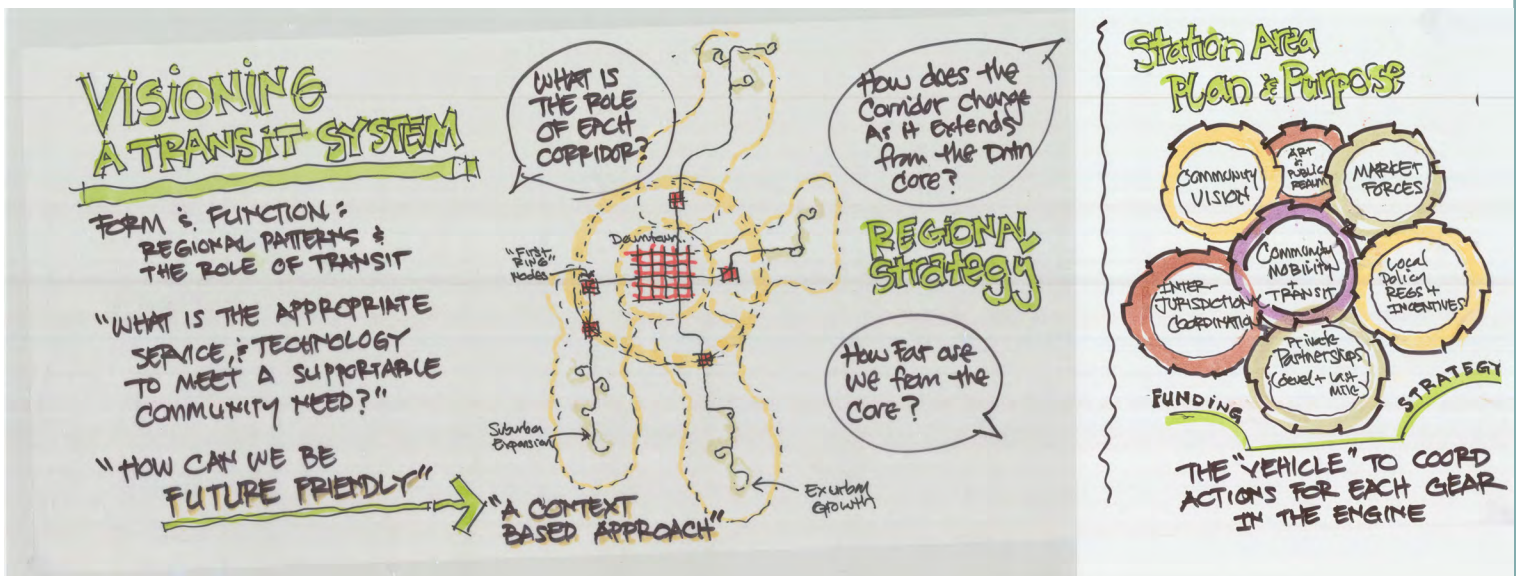 VISIONING
A TRANSIT SYSTEM
FORM & FUNCTION:
REGIONAL PATTERNS &
THE ROLE OF TRANSIT
"WHAT IS THE APPROPRIATE
SERVICE, & TECHNOLOGY
TO MEET A SUPPORTABLE
COMMUNITY NEED?"
"HOW CAN WE BE
FUTURE FRIENDLY"
"A CONTEXT
BASED APPROACH"
WHAT IS
THE ROLE
OF EACH
CORRIDOR?
Downtown
"FIRST
RING"
Nodes
Suburban
Expansion
Exurban
Growth
How does the
Corridor Change
As it Extends
from the Dntn
Core?
REGIONAL
Strategy
How Far are
we from the
Core?
Station Area
Plan & Purpose
COMMUNITY
VISION
ART
&
PUBLIC
REALM
MARKET
FORCES
Community
MOBILITY
+
TRANSIT
INTER-
JURISDICTION
COORDINATION
Local
Policy
REGS +
INCENTIVES
Private
Partnerships
(devel + last
mile)
FUNDING
STRATEGY
THE "VEHICLE" TO COORD
ACTIONS FOR EACH GEAR
IN THE ENGINE